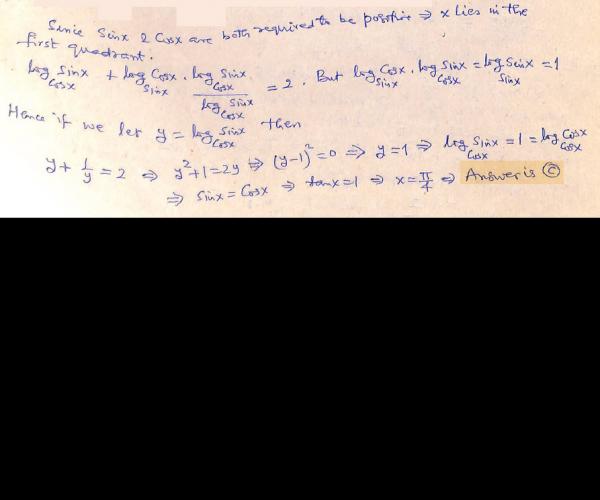 Since Sinx & Cosx are both required to be positive ⇒ x lies in the
first quadrant.
log_Cosx Sinx + log_Sinx Cosx · (log_Cosx Sinx)/(log_Cosx Sinx) = 2. But log_Sinx Cosx · log_Cosx Sinx = log_Sinx Sinx = 1
Hence if we let y = log_Cosx Sinx then
y + 1/y = 2 ⇒ y²+1=2y ⇒ (y-1)²=0 ⇒ y=1 ⇒ log_Cosx Sinx = 1 = log_Cosx Cosx
⇒ Sinx = Cosx ⇒ tanx=1 ⇒ x=π/4 ⇒ Answer is Ⓒ